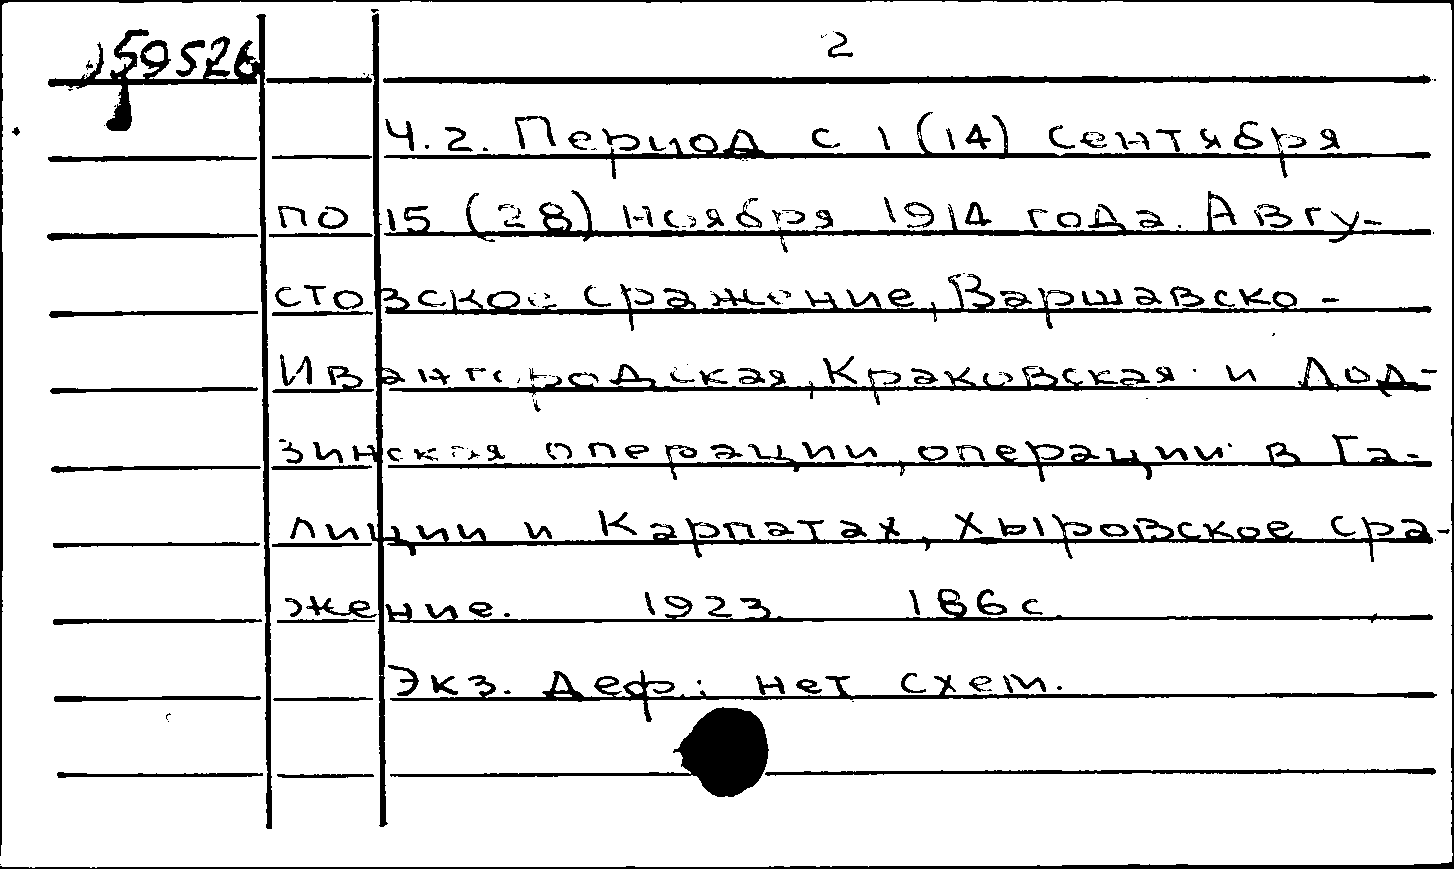 159526
2
Ч. 2. Период с 1 (14) сентября
по 15 (28) ноября 1914 года. Авгу-
стовское сражение, Варшавско-
Ивангородская, Краковская и Лод-
зинская операции, операции в Га-
лиции и Карпатах, Хыровское сра-
жение. 1923. 186 с.
Экз. деф.: нет схем.